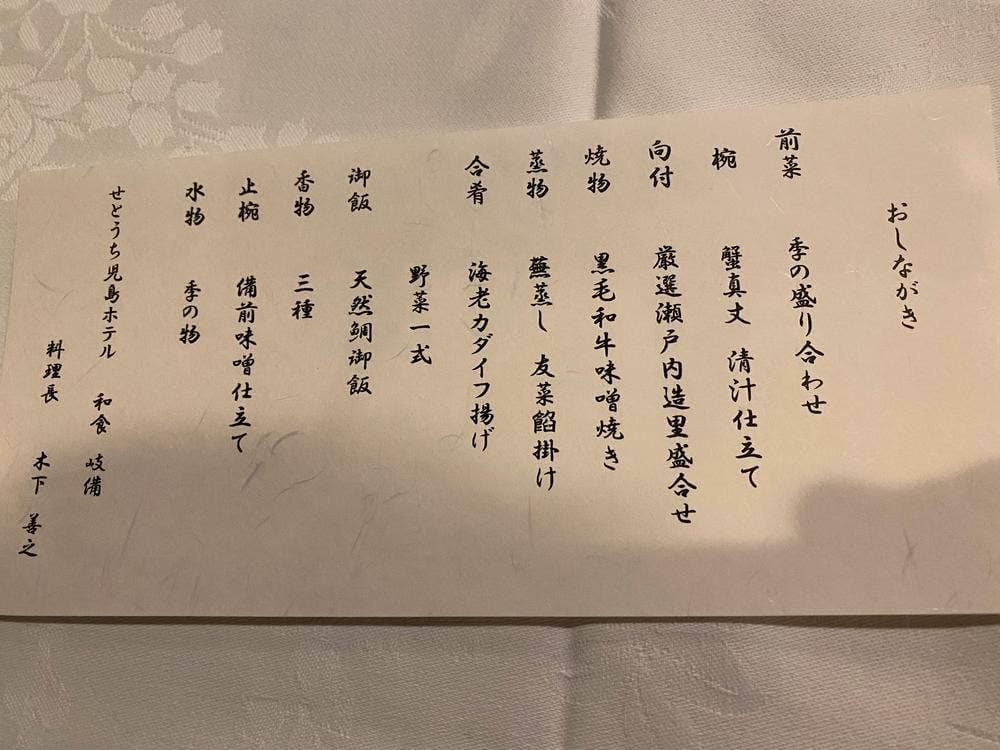 おしながき
前菜 季の盛り合わせ
椀 蟹真丈 清汁仕立て
向付 厳選瀬戸内造里盛合せ
焼物 黒毛和牛味噌焼き
蒸物 蕪蒸し 友菜餡掛け
合肴 海老カダイフ揚げ
野菜一式
御飯 天然鯛御飯
香物 三種
止椀 備前味噌仕立て
水物 季の物
せとうち児島ホテル 和食 岐備
料理長 木下 善之